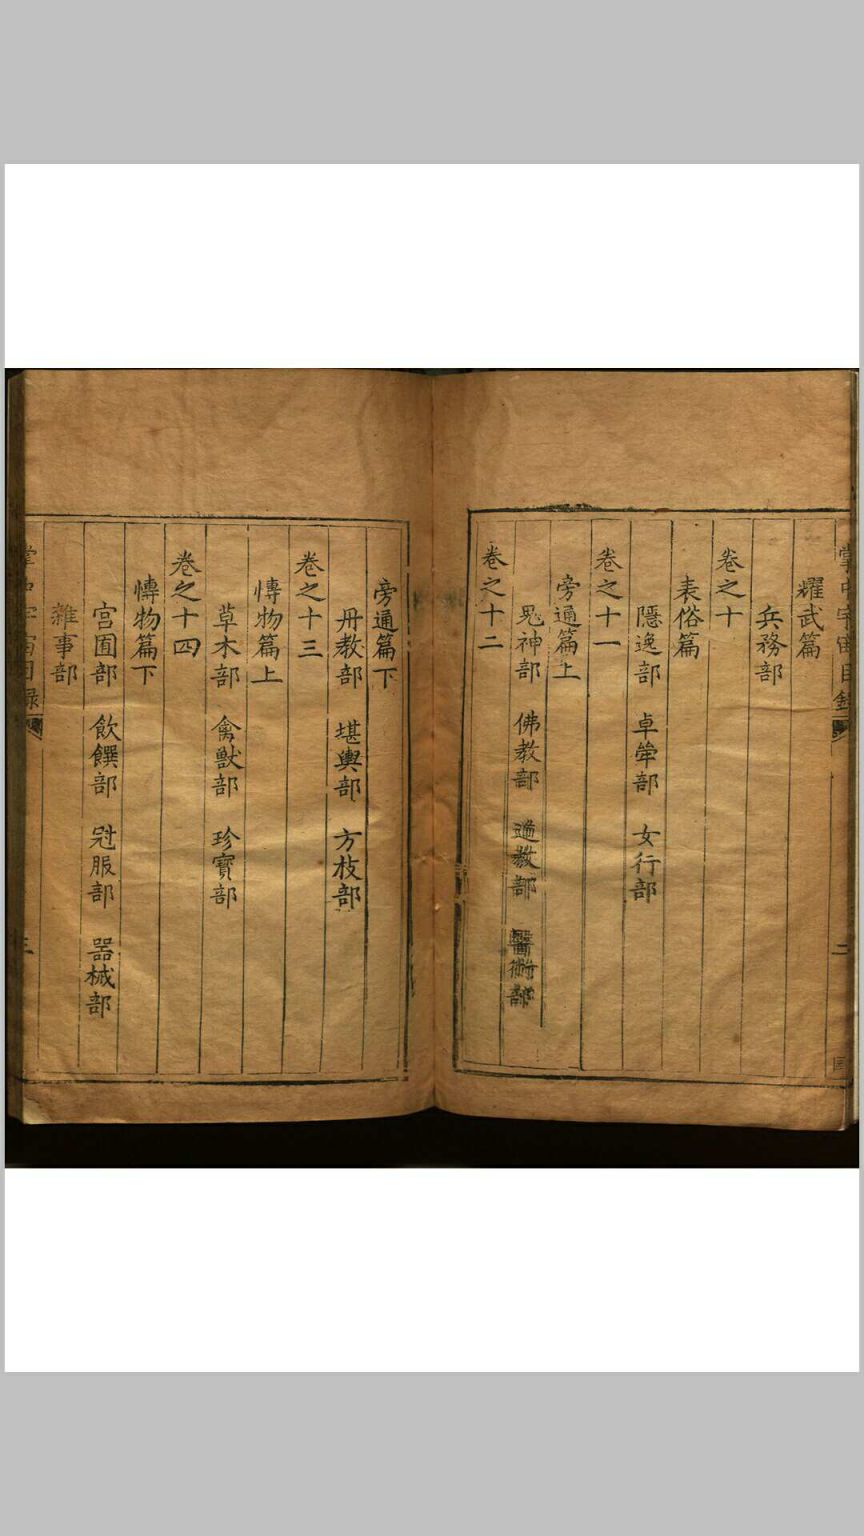 掌中宇宙目錄
二
耀武篇
兵務部
卷之十
表俗篇
隱逸部 卓犖部 女行部
卷之十一
旁通篇上
鬼神部 佛教部 道教部 醫術部
卷之十二
旁通篇下
丹教部 堪輿部 方枝部
卷之十三
博物篇上
草木部 禽獸部 珍寶部
卷之十四
博物篇下
宮囿部 飲饌部 冠服部 器械部
雜事部
掌中宇宙目錄
三